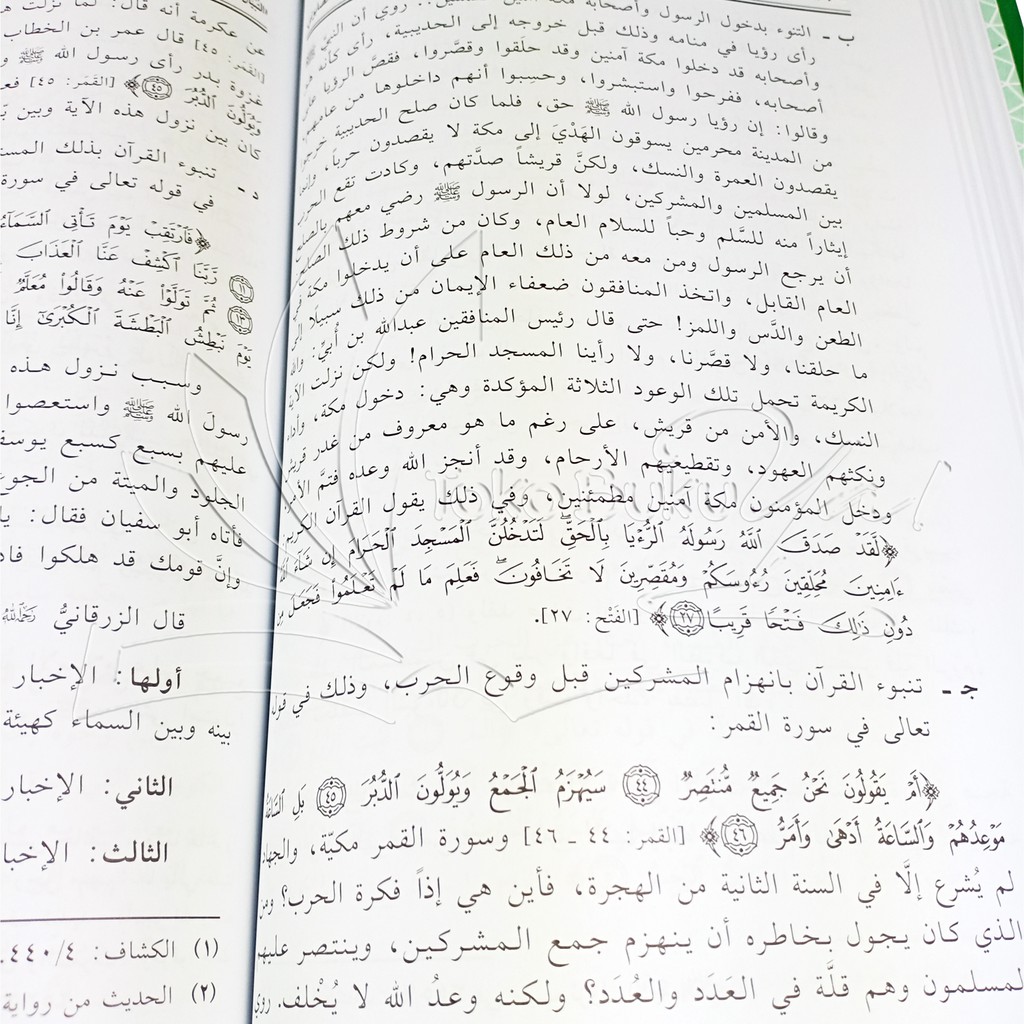 ب - التنوء بدخول الرسول وأصحابه مكة
رأى رؤيا في منامه وذلك قبل خروجه إلى الحديبية، رأى كأنه
وأصحابه قد دخلوا مكة آمنين وقد حلَقوا وقصَّروا، فقصَّ الرؤيا على
أصحابه، ففرحوا واستبشروا، وحسِبوا أنهم داخلوها من عامهم
وقالوا: إن رؤيا رسول الله ﷺ حق، فلما كان صلح الحديبية خرج
من المدينة محرمين يسوقون الهَدْيَ إلى مكة لا يقصدون حرباً،
يقصدون العمرة والنسك، ولكنَّ قريشاً صدَّتهم، وكادت تقع الحرب
بين المسلمين والمشركين، لولا أن الرسول ﷺ رضي معهم بالصلح
إيثاراً منه للسَّلم وحباً للسلام العام، وكان من شروط ذلك الصلح
أن يرجع الرسول ومن معه من ذلك العام على أن يدخلوا مكة في
العام القابل، واتخذ المنافقون ضعفاء الإيمان من ذلك سبيلا إلى
الطعن والدَّس واللمز! حتى قال رئيس المنافقين عبدالله بن أُبيّ: والله
ما حلقنا، ولا قصَّرنا، ولا رأينا المسجد الحرام! ولكن نزلت الآية
الكريمة تحمل تلك الوعود الثلاثة المؤكدة وهي: دخول مكة، وأداء
النسك، والأمن من قريش، على رغم ما هو معروف من غدر قريش
ونكثهم العهود، وتقطيعهم الأرحام، وقد أنجز الله وعده فتمَّ الأمر
ودخل المؤمنون مكة آمنين مطمئنين، وفي ذلك يقول القرآن الكريم
﴿لَّقَدْ صَدَقَ ٱللَّهُ رَسُولَهُ ٱلرُّءْيَا بِٱلْحَقِّ ۖ لَتَدْخُلُنَّ ٱلْمَسْجِدَ ٱلْحَرَامَ إِن شَآءَ ٱللَّهُ
ءَامِنِينَ مُحَلِّقِينَ رُءُوسَكُمْ وَمُقَصِّرِينَ لَا تَخَافُونَ ۖ فَعَلِمَ مَا لَمْ تَعْلَمُوا۟ فَجَعَلَ مِن
دُونِ ذَٰلِكَ فَتْحًا قَرِيبًا ٢٧﴾ [الفَتْح: ٢٧].
جـ - تنبوء القرآن بانهزام المشركين قبل وقوع الحرب، وذلك في قول
تعالى في سورة القمر:
﴿أَمْ يَقُولُونَ نَحْنُ جَمِيعٌ مُّنتَصِرٌ ٤٤ سَيُهْزَمُ ٱلْجَمْعُ وَيُوَلُّونَ ٱلدُّبُرَ ٤٥ بَلِ ٱلسَّاعَةُ
مَوْعِدُهُمْ وَٱلسَّاعَةُ أَدْهَىٰ وَأَمَرُّ ٤٦﴾ [القمر: ٤٤ - ٤٦] وسورة القمر مكيّة، والجهاد
لم يُشرع إلَّا في السنة الثانية من الهجرة، فأين هي إذاً فكرة الحرب؟ ومن
الذي كان يجول بخاطره أن ينهزم جمع المشركين، وينتصر عليهم
لمسلمون وهم قلَّة في العَدَد والعُدَد؟ ولكنه وعدُ الله لا يُخْلف. روي
عن عكرمة أنه قال: لما نزلت
[القَمَر: ٤٥] قال عمر بن الخطاب
غزوة بدر رأى رسول الله ﷺ
وَيُوَلُّونَ ٱلدُّبُرَ ٤٥﴾ [القَمَر: ٤٥]
كان بين نزول هذه الآية وبين
د - تنبوء القرآن بذلك
في قوله تعالى في سورة
﴿فَٱرْتَقِبْ يَوْمَ تَأْتِى ٱلسَّمَآءُ
١١ رَّبَّنَا ٱكْشِفْ عَنَّا ٱلْعَذَابَ
١٣ ثُمَّ تَوَلَّوْا۟ عَنْهُ وَقَالُوا۟ مُعَلَّمٌ
يَوْمَ نَبْطِشُ ٱلْبَطْشَةَ ٱلْكُبْرَىٰٓ إِنَّا
وسبب نـزول هـذه
رسولَ الله ﷺ واستعصوا
عليهم بسبع كسبع يوسف
الجلود والميتة من الجوع
فأتاه أبو سفيان فقال: يا
وإنَّ قومك قد هلكوا
قال الزرقانيُّ رَحِمَهُ اللهُ
أولها: الإخبار
بينه وبين السماء كهيئة
الثاني: الإخبار
الثالث: الإخبا
(١) الكشاف: ٤/٤٤٠.
(٢) الحديث من رواية
Toko Buku